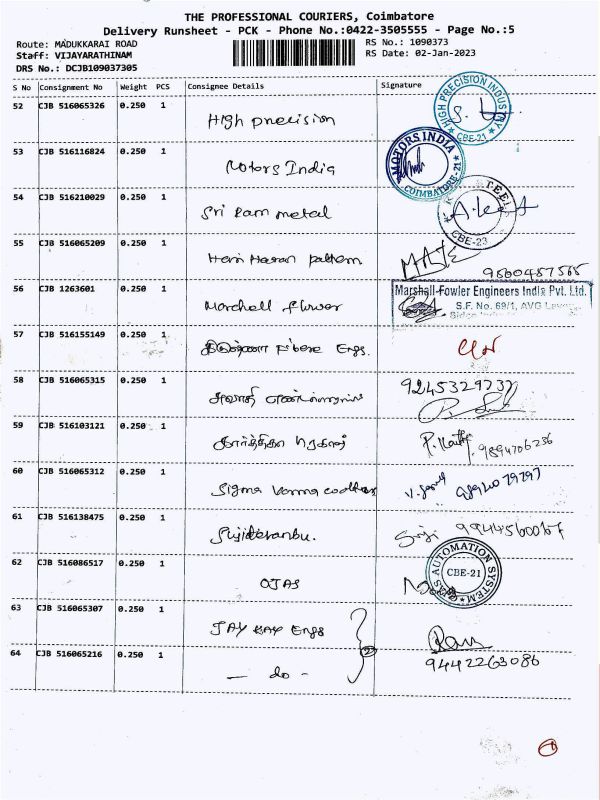 THE PROFESSIONAL COURIERS, Coimbatore
Delivery Runsheet - PCK - Phone No.:0422-3505555 - Page No.:5
Route: MADUKKARAI ROAD
Staff: VIJAYARATHINAM
DRS No.: DCJB109037305
RS No.: 1090373
RS Date: 02-Jan-2023
S No Consignment No Weight PCS Consignee Details Signature
52 CJB 516065326 0.250 1 High precision
HIGH PRECISION INDUSTRY
CBE-21
53 CJB 516116824 0.250 1 Motors India
MOTORS INDIA
COIMBATORE-21
54 CJB 516210029 0.250 1 Sri Ram metal
CBE-23
55 CJB 516065209 0.250 1 Hari Haran pattern
56 CJB 1263601 0.250 1 Marchell flwer
Marshall-Fowler Engineers India Pvt. Ltd.
S.F. No. 69/1, AVG
57 CJB 516155149 0.250 1 Engs.
58 CJB 516065315 0.250 1
9245329737
59 CJB 516103121 0.250 1 கார்த்திகா
9894706256
60 CJB 516065312 0.250 1 Sigma
61 CJB 516138475 0.250 1
9944560067
62 CJB 516086517 0.250 1 OJAS
OJAS AUTOMATION SYSTEM
CBE-21
63 CJB 516065307 0.250 1 JAY KAY Engs
64 CJB 516065216 0.250 1 - do -
2
9442263086